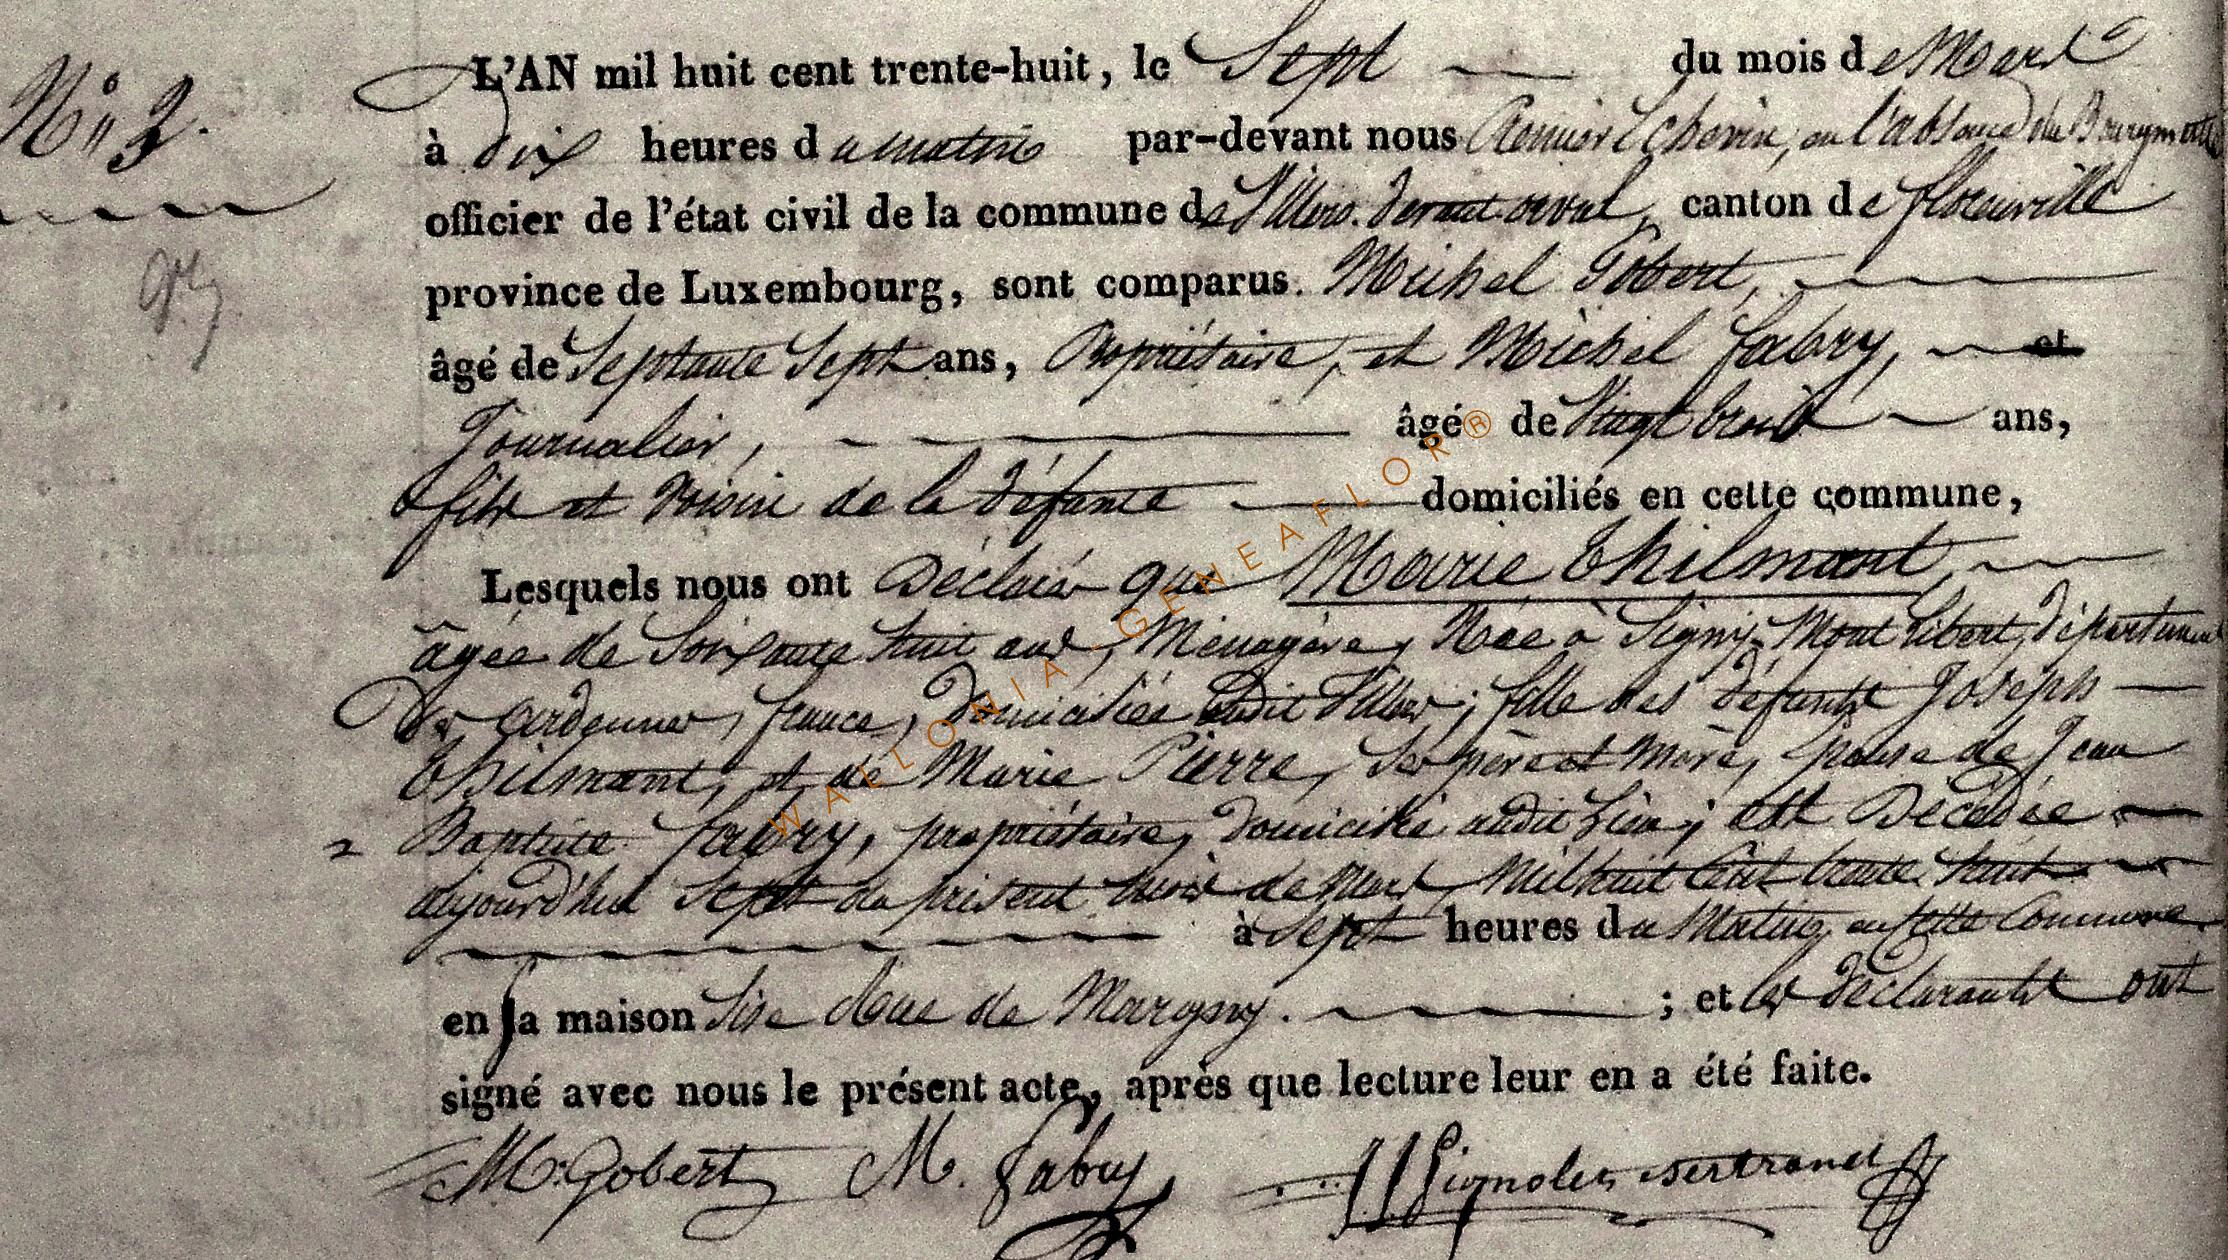 N.° 3.
L'AN mil huit cent trente-huit, le Sept du mois de Mars
à dix heures du matin par-devant nous Premier Echevin, en l'absence du Bourgmestre
officier de l'état civil de la commune de Villers-devant-orval, canton de florenville
province de Luxembourg, sont comparus. Michel Gobert,
âgé de Septante Sept ans, Propriétaire, et Michel fabry, et
Journalier, âgé de Vingt ans,
et voisin de la défunte domiciliés en cette commune,
Lesquels nous ont Déclaré que Marie Thilmant,
âgée de Soixante huit ans, Ménagère, Née à Signy-Mont libert, département
Des ardennes, france, Domiciliée audit Villers; fille des défunts Joseph
Thilmant, et de Marie Pierre, Ses père et Mère, épouse de Jean
Baptiste fabry, propriétaire, Domicilié audit Lieu; est Décédée
aujourd'hui Sept du présent mois de Mars, Mil huit Cent trente huit
à Sept heures du Matin, en cette Commune
en sa maison Sise Rue de Margny. ; et les déclarants ont
signé avec nous le présent acte, après que lecture leur en a été faite.
M. Gobert M. fabry Bertrand
WALLONIA-GENEAFLOR®